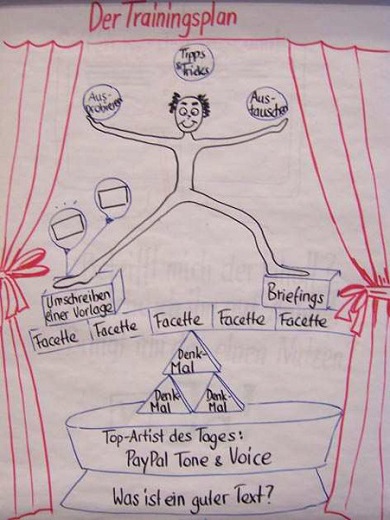 Der Trainingsplan
Tipps
& Tricks
Aus-
probieren
Aus-
tauschen
Umschreiben
einer Vorlage
Briefings
Facette
Facette
Facette
Facette
Facette
Denk-
Mal
Denk-
Mal
Denk-
Mal
Top-Artist des Tages:
PayPal Tone & Voice
Was ist ein guter Text?